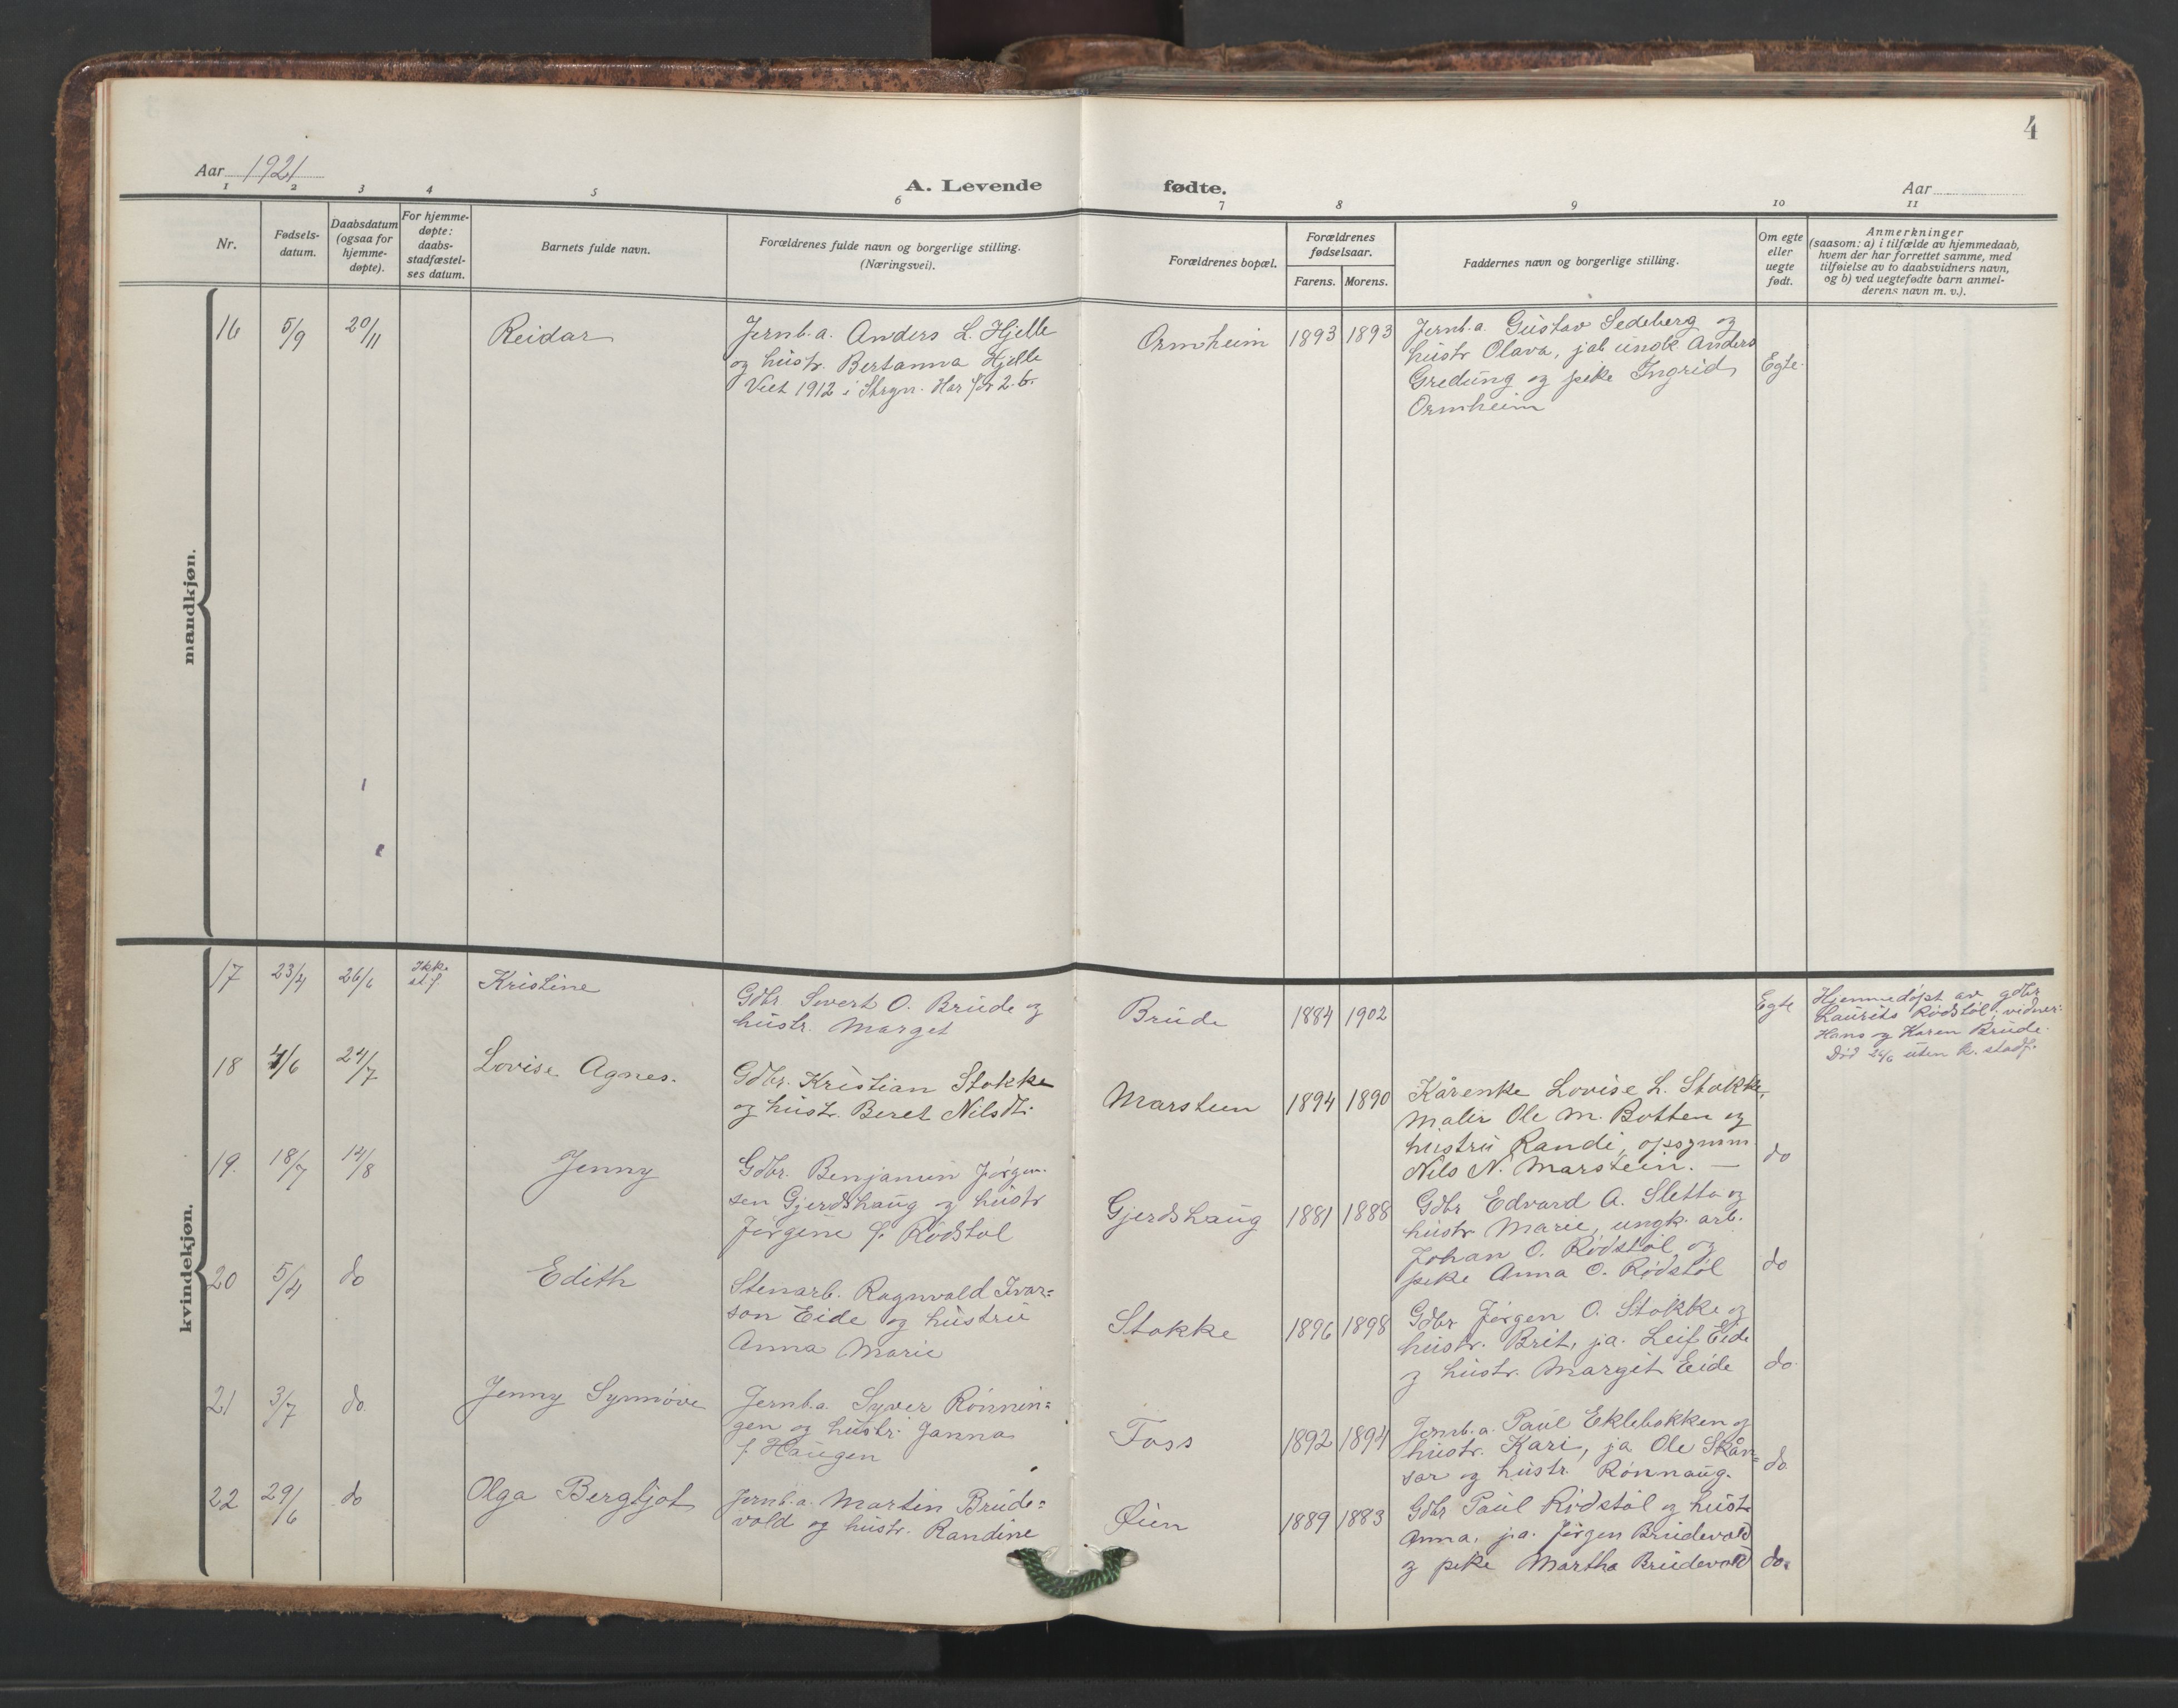 4
Aar 1921
A. Levende fødte.
Aar
1 2 3 4 5 6 7 8 9 10 11
Nr.
Fødsels-
datum.
Daabsdatum
(ogsaa for
hjemme-
døpte).
For hjemme-
døpte:
daabs-
stadfæstel-
ses datum.
Barnets fulde navn.
Forældrenes fulde navn og borgerlige stilling.
(Næringsvei).
Forældrenes bopæl.
Forældrenes
fødselsaar.
Farens. Morens.
Faddernes navn og borgerlige stilling.
Om egte
eller
uegte
født.
Anmerkninger
(saasom: a) i tilfælde av hjemmedaab,
hvem der har forrettet samme, med
tilføielse av to daabsvidners navn,
og b) ved uegtefødte barn anmel-
derens navn m. v.).
mandkjøn.
16 5/9 20/11 Reidar
Jernb.a. Anders L. Hjelle
og hustr. Bertanna Hjelle
Viet 1912 i Stryn. Har før 2 b.
Ormheim 1893 1893
Jernb.a. Gustav Sedeberg og
hustr Olava, ja ungk. Anders
Gredung og pike Ingrid
Ormheim
Egte.
kvindekjøn.
17 23/4 26/6 Ikke
st.f.
Kristine
Gdbr. Sivert O. Brude og
hustr. Marget
Brude 1884 1902
Egte
Hjemmedøpt av gdbr
Laurits Rødstøl; vidner:
Hans og Karen Brude.
Død 26/6 uten k. stadf.
18 4/6 24/7 Lovise Agnes.
Gdbr. Kristian Stokke
og hustr. Beret Nilsdt.
Marstein 1894 1890
Kårenke Lovise L. Stokke,
Maler Ole M. Botten og
hustru Randi, opsynsm.
Nils N. Marstein. —
do
19. 18/7 14/8 Jenny
Gdbr. Benjamin Jørgen-
sen Gjerdshaug og hustr
Jørgine f. Rødstøl
Gjerdshaug 1881 1888
Gdbr Edvard A. Sletta og
hustr Marie, ungk. arb.
Johan O. Rødstøl og
pike Anna O. Rødstøl
do
20 5/4 do Edith
Stenarb. Ragnvald Ivar=
son Eide og hustru
Anna Marie
Stokke 1896 1898
Gdbr Jørgen O. Stokke og
hustr. Brit, ja. Leif Eide
og hustr. Margit Eide
do.
21 3/7 do. Jenny Synnøve
Jernb.a. Syver Rønnin=
gen og hustr. Janna
f. Haugen
Foss 1892 1894
Jernb.a. Paul Eklebakken og
hustr. Kari, ja Ole Skån=
sar og hustr. Rønnaug.
do.
22 29/6 do Olga Bergljot
Jernb.a. Martin Brude=
vold og hustr. Randine
Øien 1889 1883
Gdbr Paul Rødstøl og hust.
Anna, ja. Jørgen Brudevold
og pike Martha Brudevold
do.